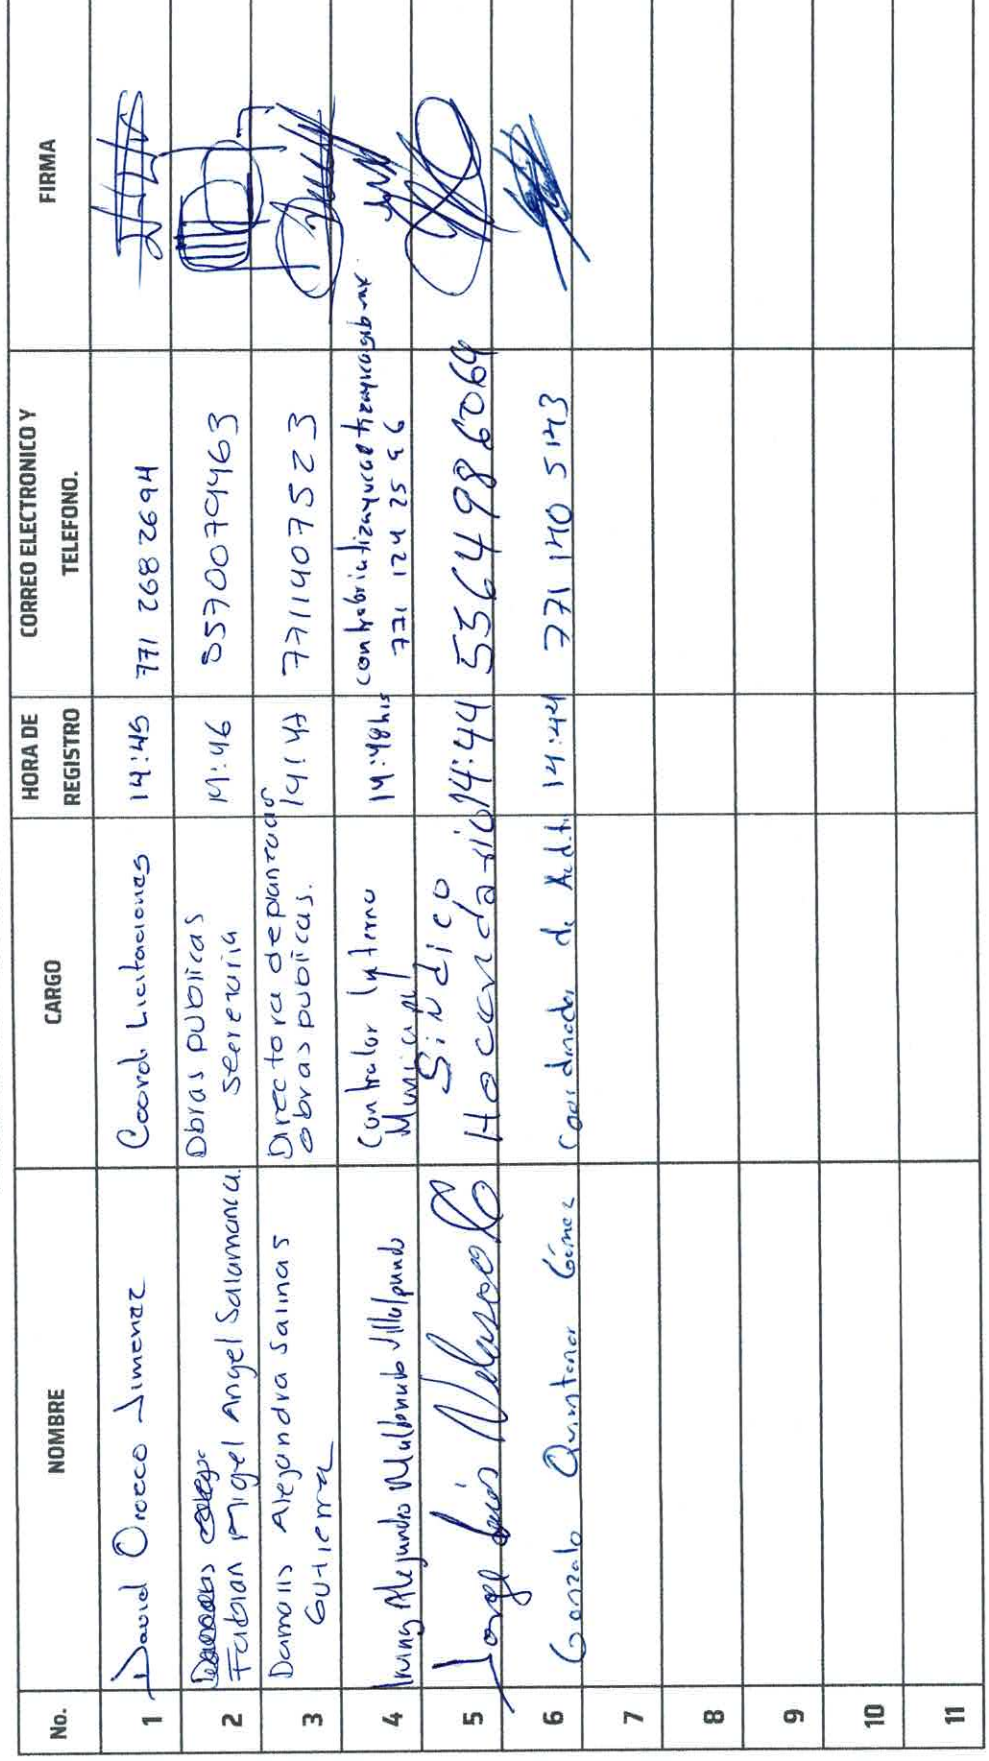 No. NOMBRE CARGO HORA DE REGISTRO CORREO ELECTRONICO Y TELEFONO. FIRMA
1 David Orozco Jimenez Coord. Licitaciones 14:45 771 268 2694
2 Fabian Migel Angel Salamanca Obras publicas secretaria 14:46 5570079463
3 Damaris Alejandra Salinas Gutierrez Directora de planeación obras publicas. 14:47 7711407523
4 Alejandro Maldonado Villalpando Contralor Interno Municipal 14:48hrs 771 124 25 96
5 Jorge Luis Velasco Sindico Hacendario 14:44 5564986069
6 Gonzalo Quintanar Gómez Coordinador de 14:44 771 140 5143
7
8
9
10
11